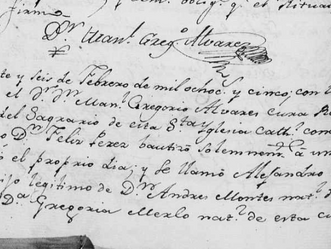 firmó
Dr. Manl. Grego. Alvarez
te y seis de Febrero de mil ochoc. y cinco; con
el Sr. Dn. Man. Gregorio Alvares Cura
del Sagrario de esta Sta. Iglesia Cathl. com
Dn. Felix Perez bautizó solemnemte. a un
el proprio dia, y se llamó Alejandro
ijo legitimo de Dn. Andres Montes nat.
Da. Gregoria Merlo nat. de esta c